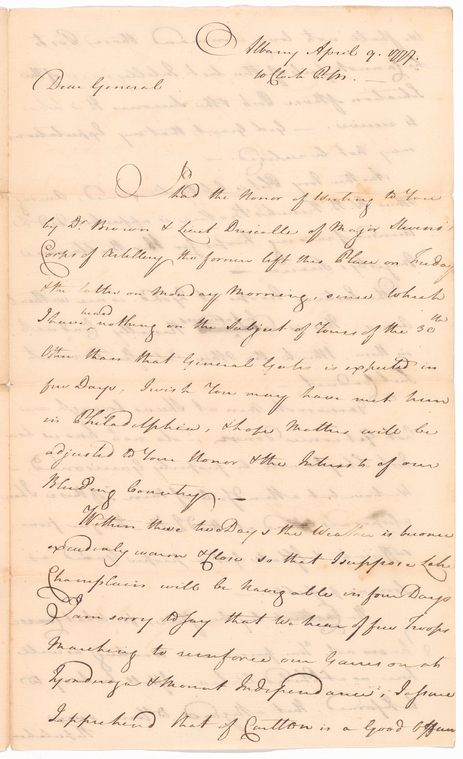 Albany April 9. 1777.
10 Clock P.M.
Dear General
I had the Honor of Writing to You
by Dr Brown & Lieut Driscalle of Major Stevens
Corps of Artillery, the former left this Place on Friday
& the latter on Monday Morning, since which
I have heard nothing on the Subject of Yours of the 30th
Other than that General Gates is expected in
few Days. I wish You may have met him
in Philadelphia, & hope Matters will be
adjusted to Your Honor & the Interests of our
Bleeding Country. —
Within these two Days the Weather is become
exceedingly warm & Close so that I suppose Lake
Champlain will be navigable in four Days
I am sorry to say that we hear of few Troops
Marching to reinforce our Garrison at
Tyonderoga & Mount Independance;
I apprehend that if Carlton is a Good Officer